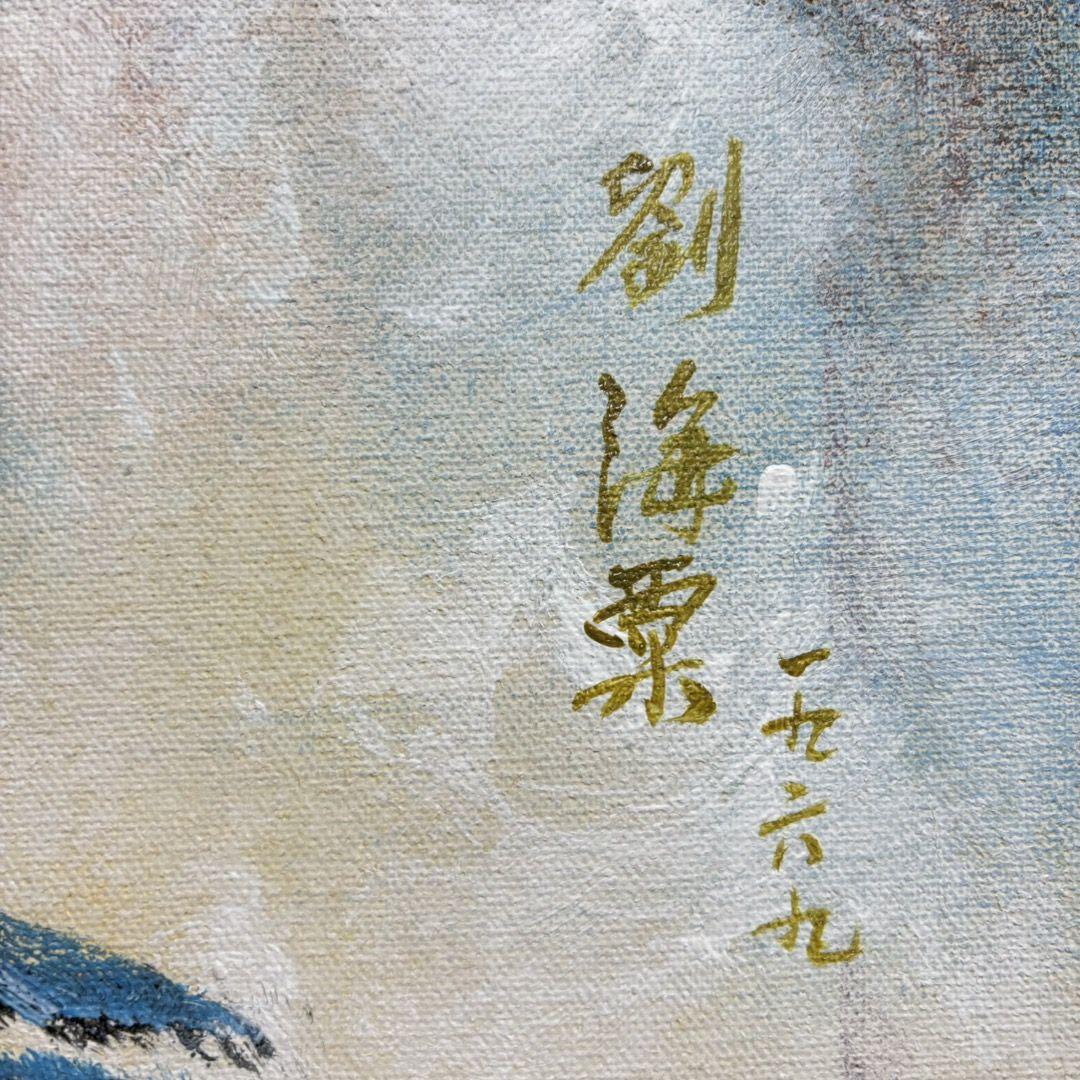 劉海粟
一九六九